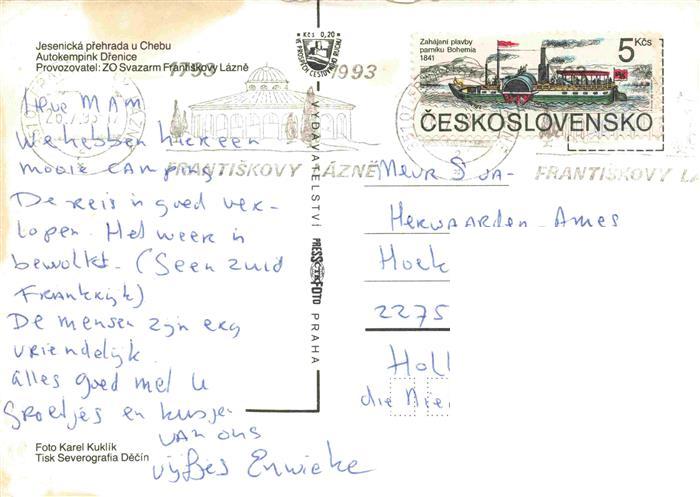 Jesenická přehrada u Chebu
Autokempink Dřenice
Provozovatel: ZO Svazarm Františkovy Lázně
Lieve MAM
We hebben hier een
mooie camping
De reis is goed ver-
lopen. Het weer is
bewolkt. (Geen zuid
Frankrijk)
De mensen zijn erg
vriendelijk
Alles goed met u
Groetjes en kusjes
van ons
Foto Karel Kuklík
Tisk Severografia Děčín
Kčs 0,20
VYDAVATELSTVÍ PRESSFOTO PRAHA
1793 1993
FRANTIŠKOVY LÁZNĚ
Zahájení plavby
parníku Bohemia
1841
5 Kčs
ČESKOSLOVENSKO
FRANTIŠKOVY LÁ
Mevr S va-
Herwaarden-Ames
Hoek
2275
Holl
die Nie